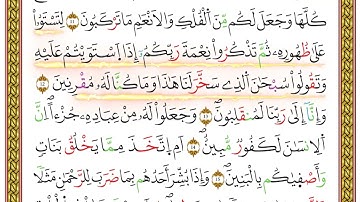 كُلَّهَا وَجَعَلَ لَكُم مِّنَ ٱلْفُلْكِ وَٱلْأَنْعَٰمِ مَا تَرْكَبُونَ ١١ لِتَسْتَوُۥا۟
عَلَىٰ ظُهُورِهِۦ ثُمَّ تَذْكُرُوا۟ نِعْمَةَ رَبِّكُمْ إِذَا ٱسْتَوَيْتُمْ عَلَيْهِ
وَتَقُولُوا۟ سُبْحَٰنَ ٱلَّذِے سَخَّرَ لَنَا هَٰذَا وَمَا كُنَّا لَهُۥ مُقْرِنِينَ ١٢
وَإِنَّآ إِلَىٰ رَبِّنَا لَمُنقَلِبُونَ ١٣ وَجَعَلُوا۟ لَهُۥ مِنْ عِبَادِهِۦ جُزْءًا اِنَّ
ٱلْإِنسَٰنَ لَكَفُورٌ مُّبِينٌ ١٤ أَمِ ٱتَّخَذَ مِمَّا يَخْلُقُ بَنَاتٍ
وَأَصْفَىٰكُم بِٱلْبَنِينَ ١٥ وَإِذَا بُشِّرَ أَحَدُهُم بِمَا ضَرَبَ لِلرَّحْمَٰنِ مَثَلًا